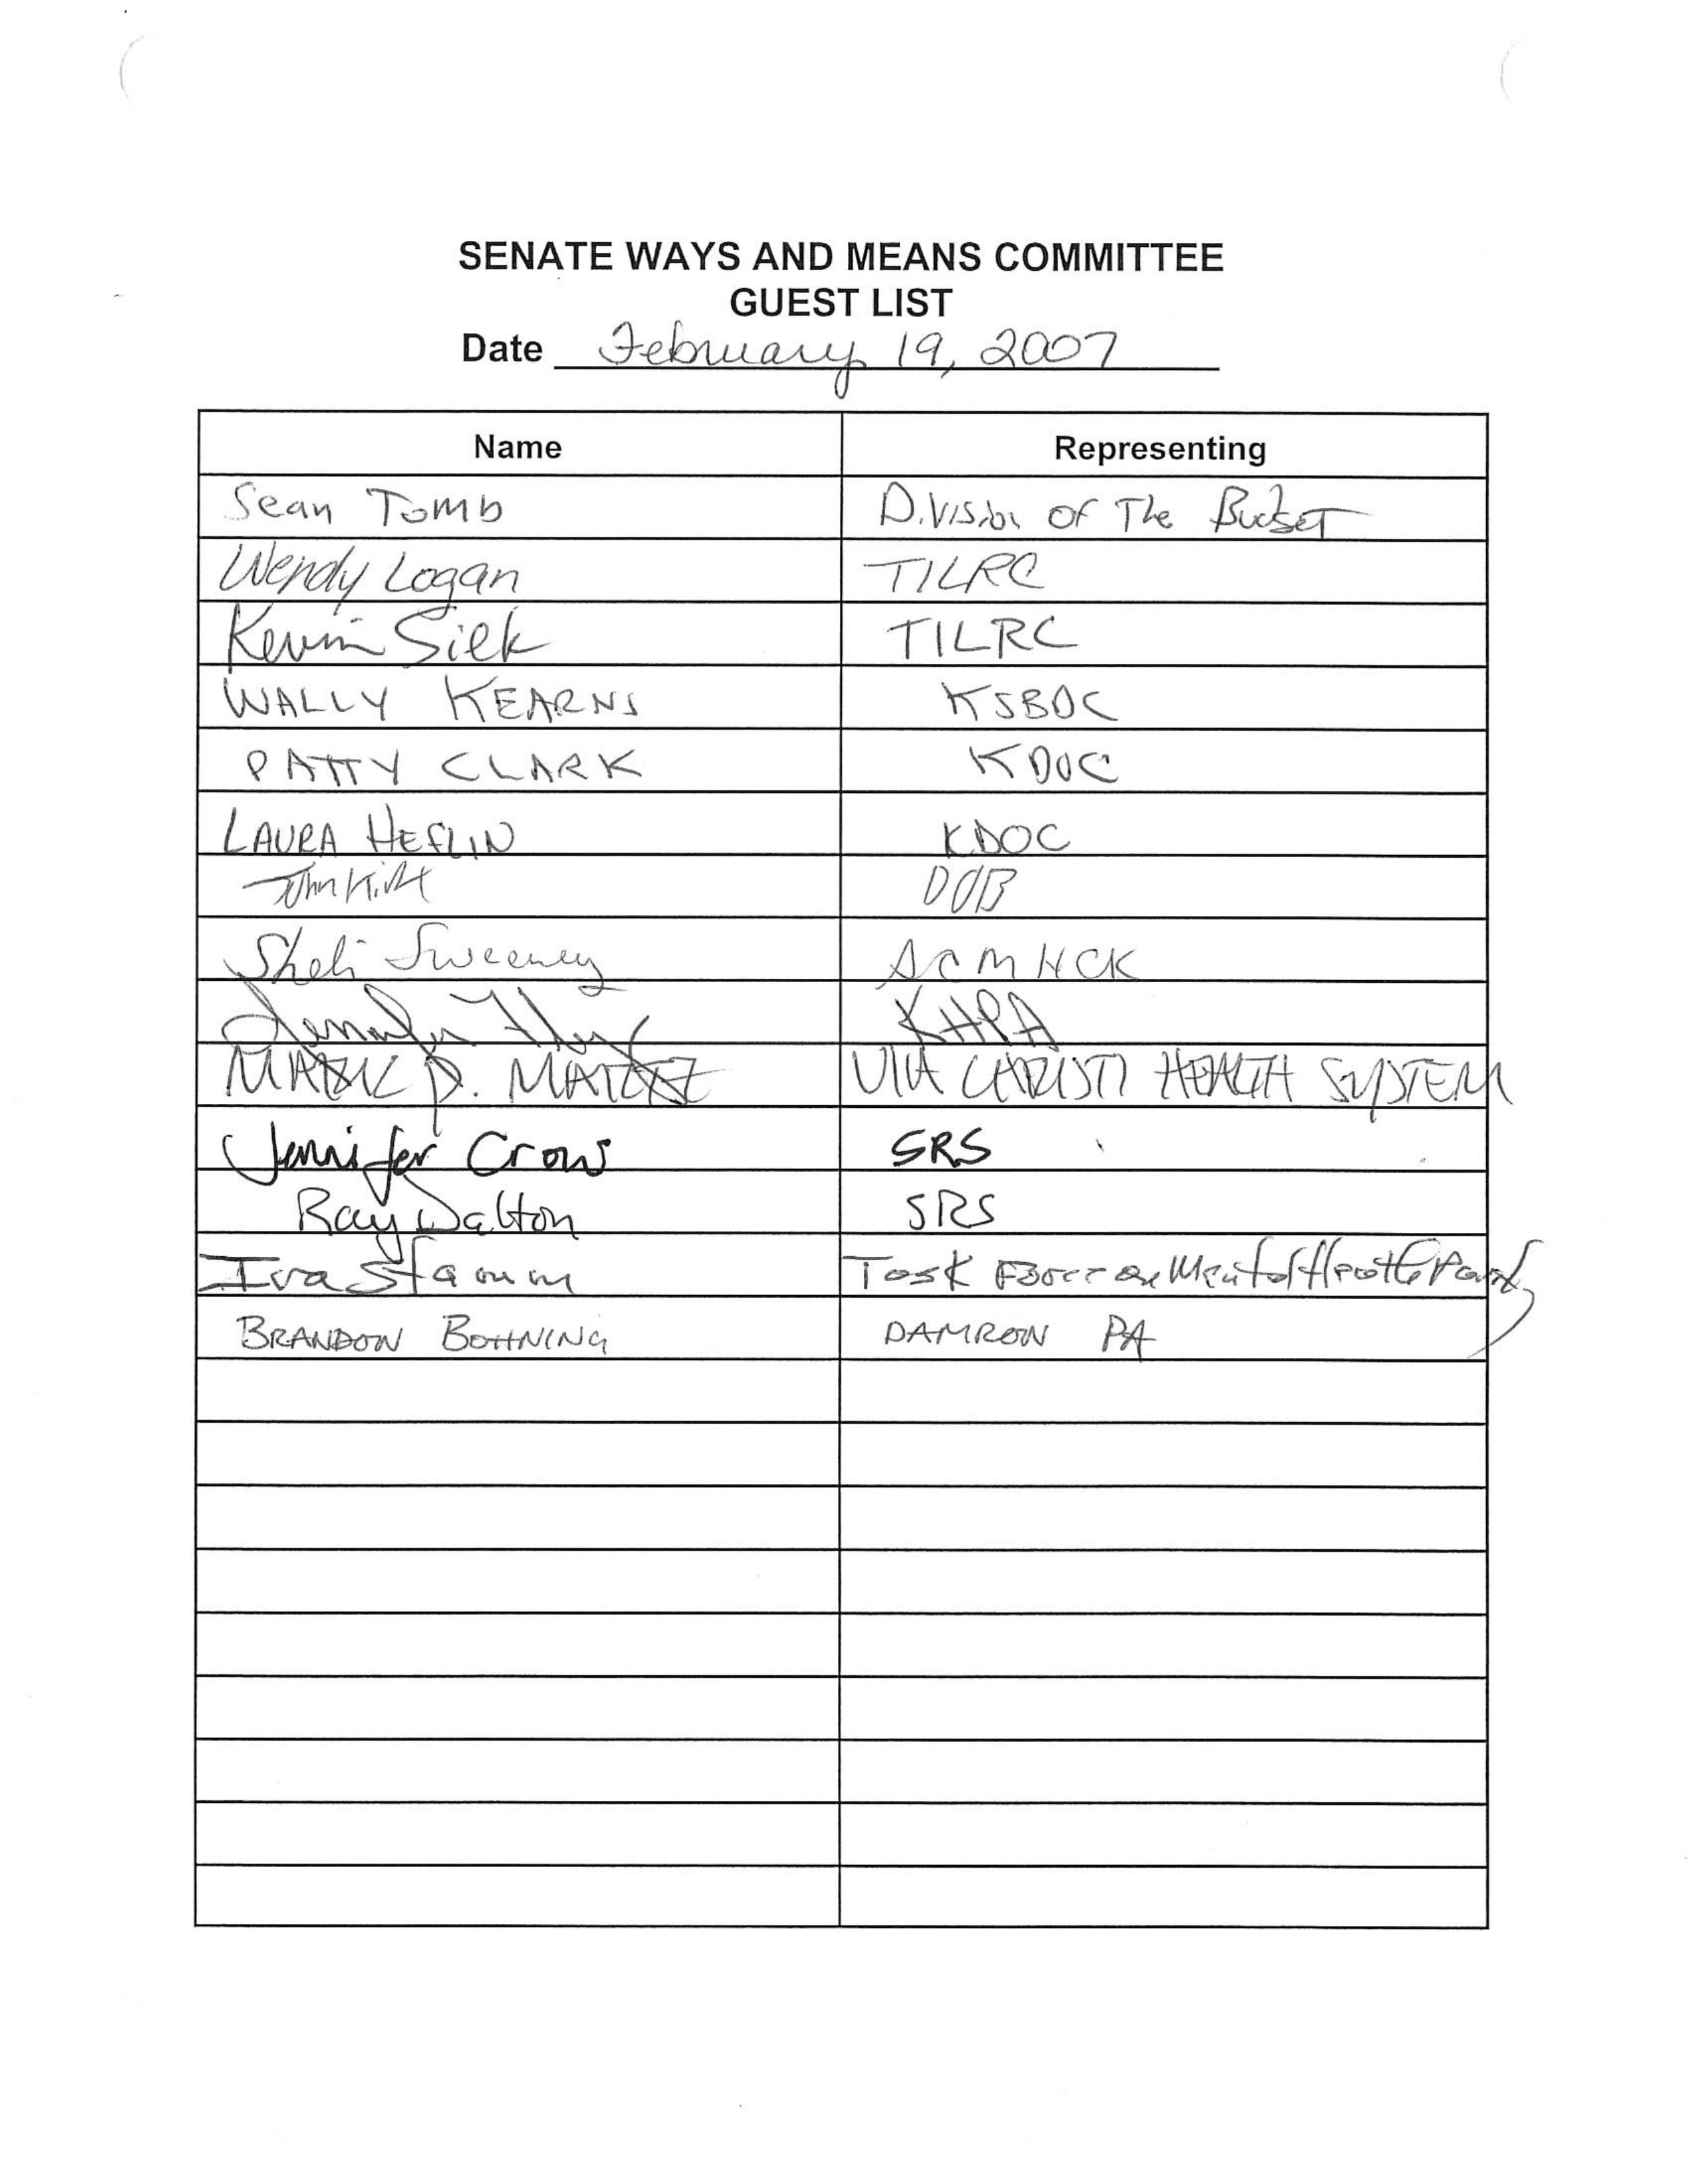 SENATE WAYS AND MEANS COMMITTEE
GUEST LIST
Date February 19, 2007
Name Representing
Sean Tomb Division of The Budget
Wendy Logan TILRC
Kevin Siek TILRC
WALLY KEARNS KSBDC
PATTY CLARK KDOC
LAURA HEFLIN KDOC
John DOB
Sheli Sweeney ACMHCK
Jennifer KHPA
MARK D. VIA CHRISTI HEALTH SYSTEM
Jennifer Crow SRS
Ray Dalton SRS
Ira Stamm Task Force on Mental Health Parity
BRANDON BOHNING DAMRON PA